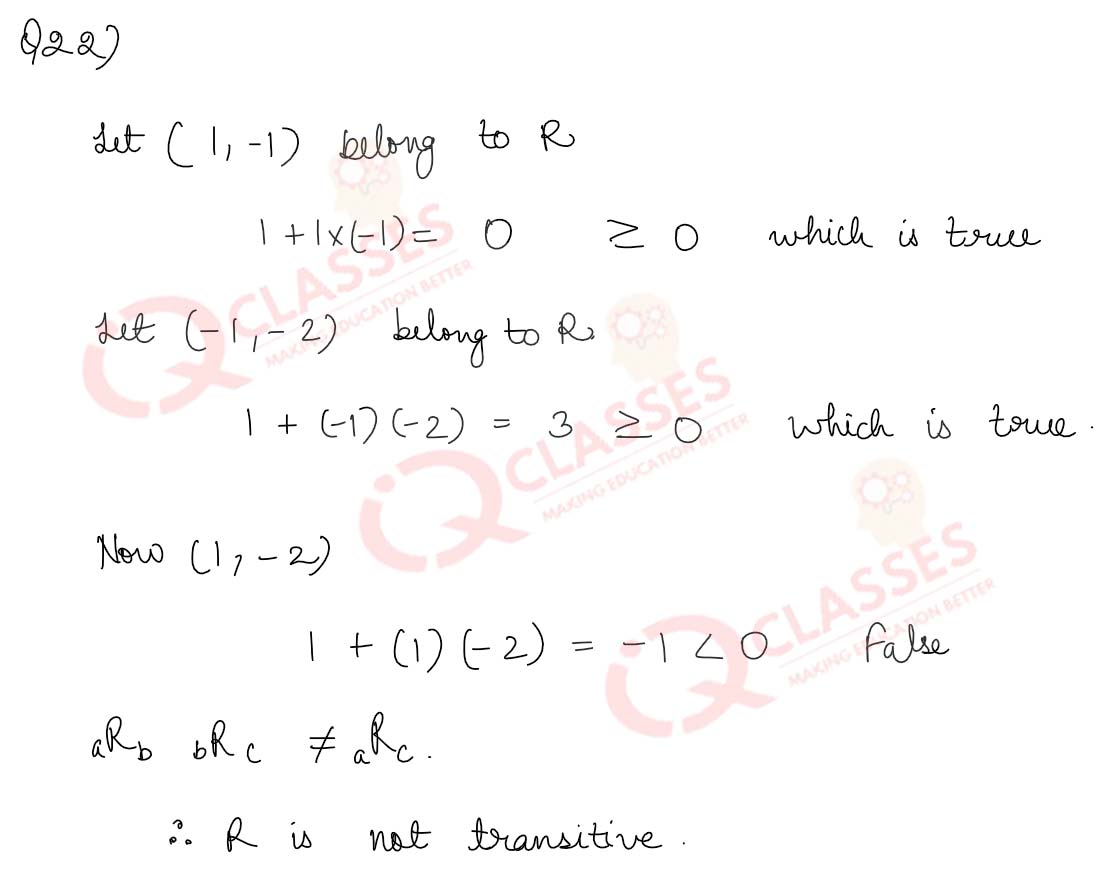 Q22)
Let (1, -1) belong to R
1 + 1×(-1) = 0 ≥ 0 which is true
Let (-1, -2) belong to R.
1 + (-1) (-2) = 3 ≥ 0 which is true.
Now (1, -2)
1 + (1) (-2) = -1 < 0 False
aRb bRc ≠ aRc.
∴ R is not transitive.
CLASSES
MAKING EDUCATION BETTER
CLASSES
MAKING EDUCATION BETTER
CLASSES
MAKING EDUCATION BETTER